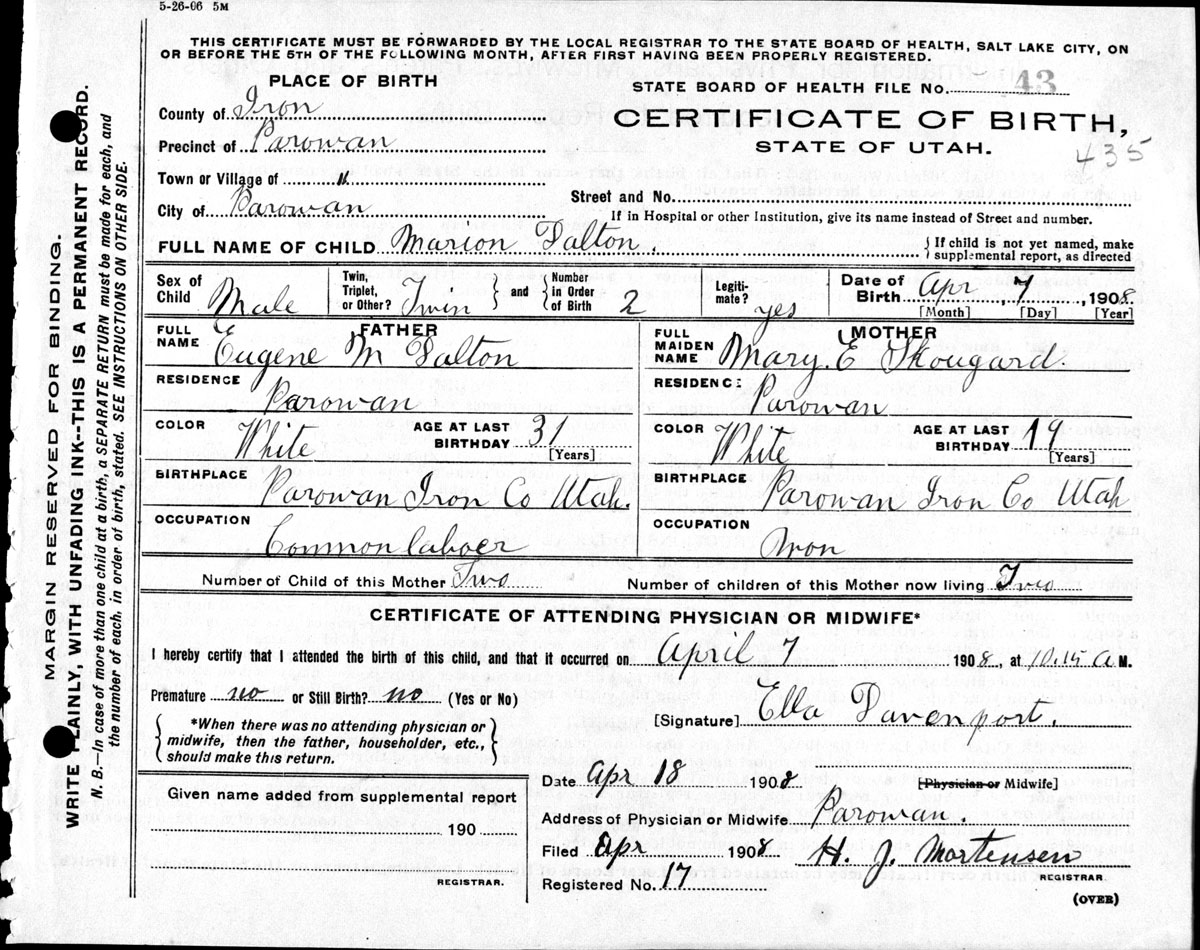 5-26-06 5M
THIS CERTIFICATE MUST BE FORWARDED BY THE LOCAL REGISTRAR TO THE STATE BOARD OF HEALTH, SALT LAKE CITY, ON
OR BEFORE THE 5TH OF THE FOLLOWING MONTH, AFTER FIRST HAVING BEEN PROPERLY REGISTERED.
PLACE OF BIRTH
STATE BOARD OF HEALTH FILE NO. 43
County of Iron
CERTIFICATE OF BIRTH,
Precinct of Parowan
STATE OF UTAH.
435
Town or Village of "
Street and No.
City of Parowan
If in Hospital or other Institution, give its name instead of Street and number.
FULL NAME OF CHILD Marion Dalton.
If child is not yet named, make
supplemental report, as directed
Sex of Child Male
Twin, Triplet, or Other? Twin
and
Number in Order of Birth 2
Legiti-mate? yes
Date of Birth Apr 7, 1908
[Month] [Day] [Year]
FATHER
FULL NAME Eugene M Dalton
RESIDENCE Parowan
COLOR White
AGE AT LAST BIRTHDAY 31
[Years]
BIRTHPLACE Parowan Iron Co Utah.
OCCUPATION Common laboer
MOTHER
FULL MAIDEN NAME Mary. E Skougard.
RESIDENCE Parowan
COLOR White
AGE AT LAST BIRTHDAY 19
[Years]
BIRTHPLACE Parowan Iron Co Utah
OCCUPATION
Number of Child of this Mother Two
Number of children of this Mother now living Two
CERTIFICATE OF ATTENDING PHYSICIAN OR MIDWIFE*
I hereby certify that I attended the birth of this child, and that it occurred on April 7 1908, at 10.15 A M.
Premature no or Still Birth? no (Yes or No)
[Signature] Ella Davenport.
*When there was no attending physician or
midwife, then the father, householder, etc.,
should make this return.
Date Apr 18 1908
[Physician or Midwife]
Given name added from supplemental report
190
REGISTRAR.
Address of Physician or Midwife Parowan.
Filed Apr 1908 H. J. Mortensen
REGISTRAR.
Registered No. 17
(OVER)
MARGIN RESERVED FOR BINDING.
WRITE PLAINLY, WITH UNFADING INK--THIS IS A PERMANENT RECORD.
N. B.—In case of more than one child at a birth, a SEPARATE RETURN must be made for each, and
the number of each, in order of birth, stated. SEE INSTRUCTIONS ON OTHER SIDE.